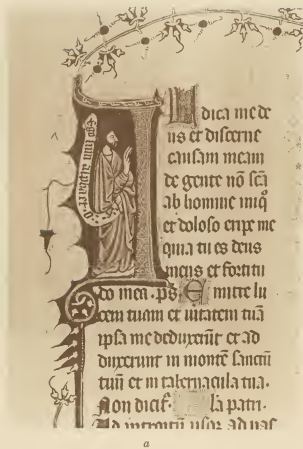 Iudica me de
us et discerne
causam meam
de gente nō scā
ab homine iniq
et doloso eripe me
quia tu es deus
meus et fortitu
do mea . ps. Emitte lu
cem tuam et uitatem tuā
ipsa me deduxerūt et ad
duxerunt in montē sanctū
tuū et in tabernacula tua.
Non dicit la patri.
Ad introitū usqz ad pas
a